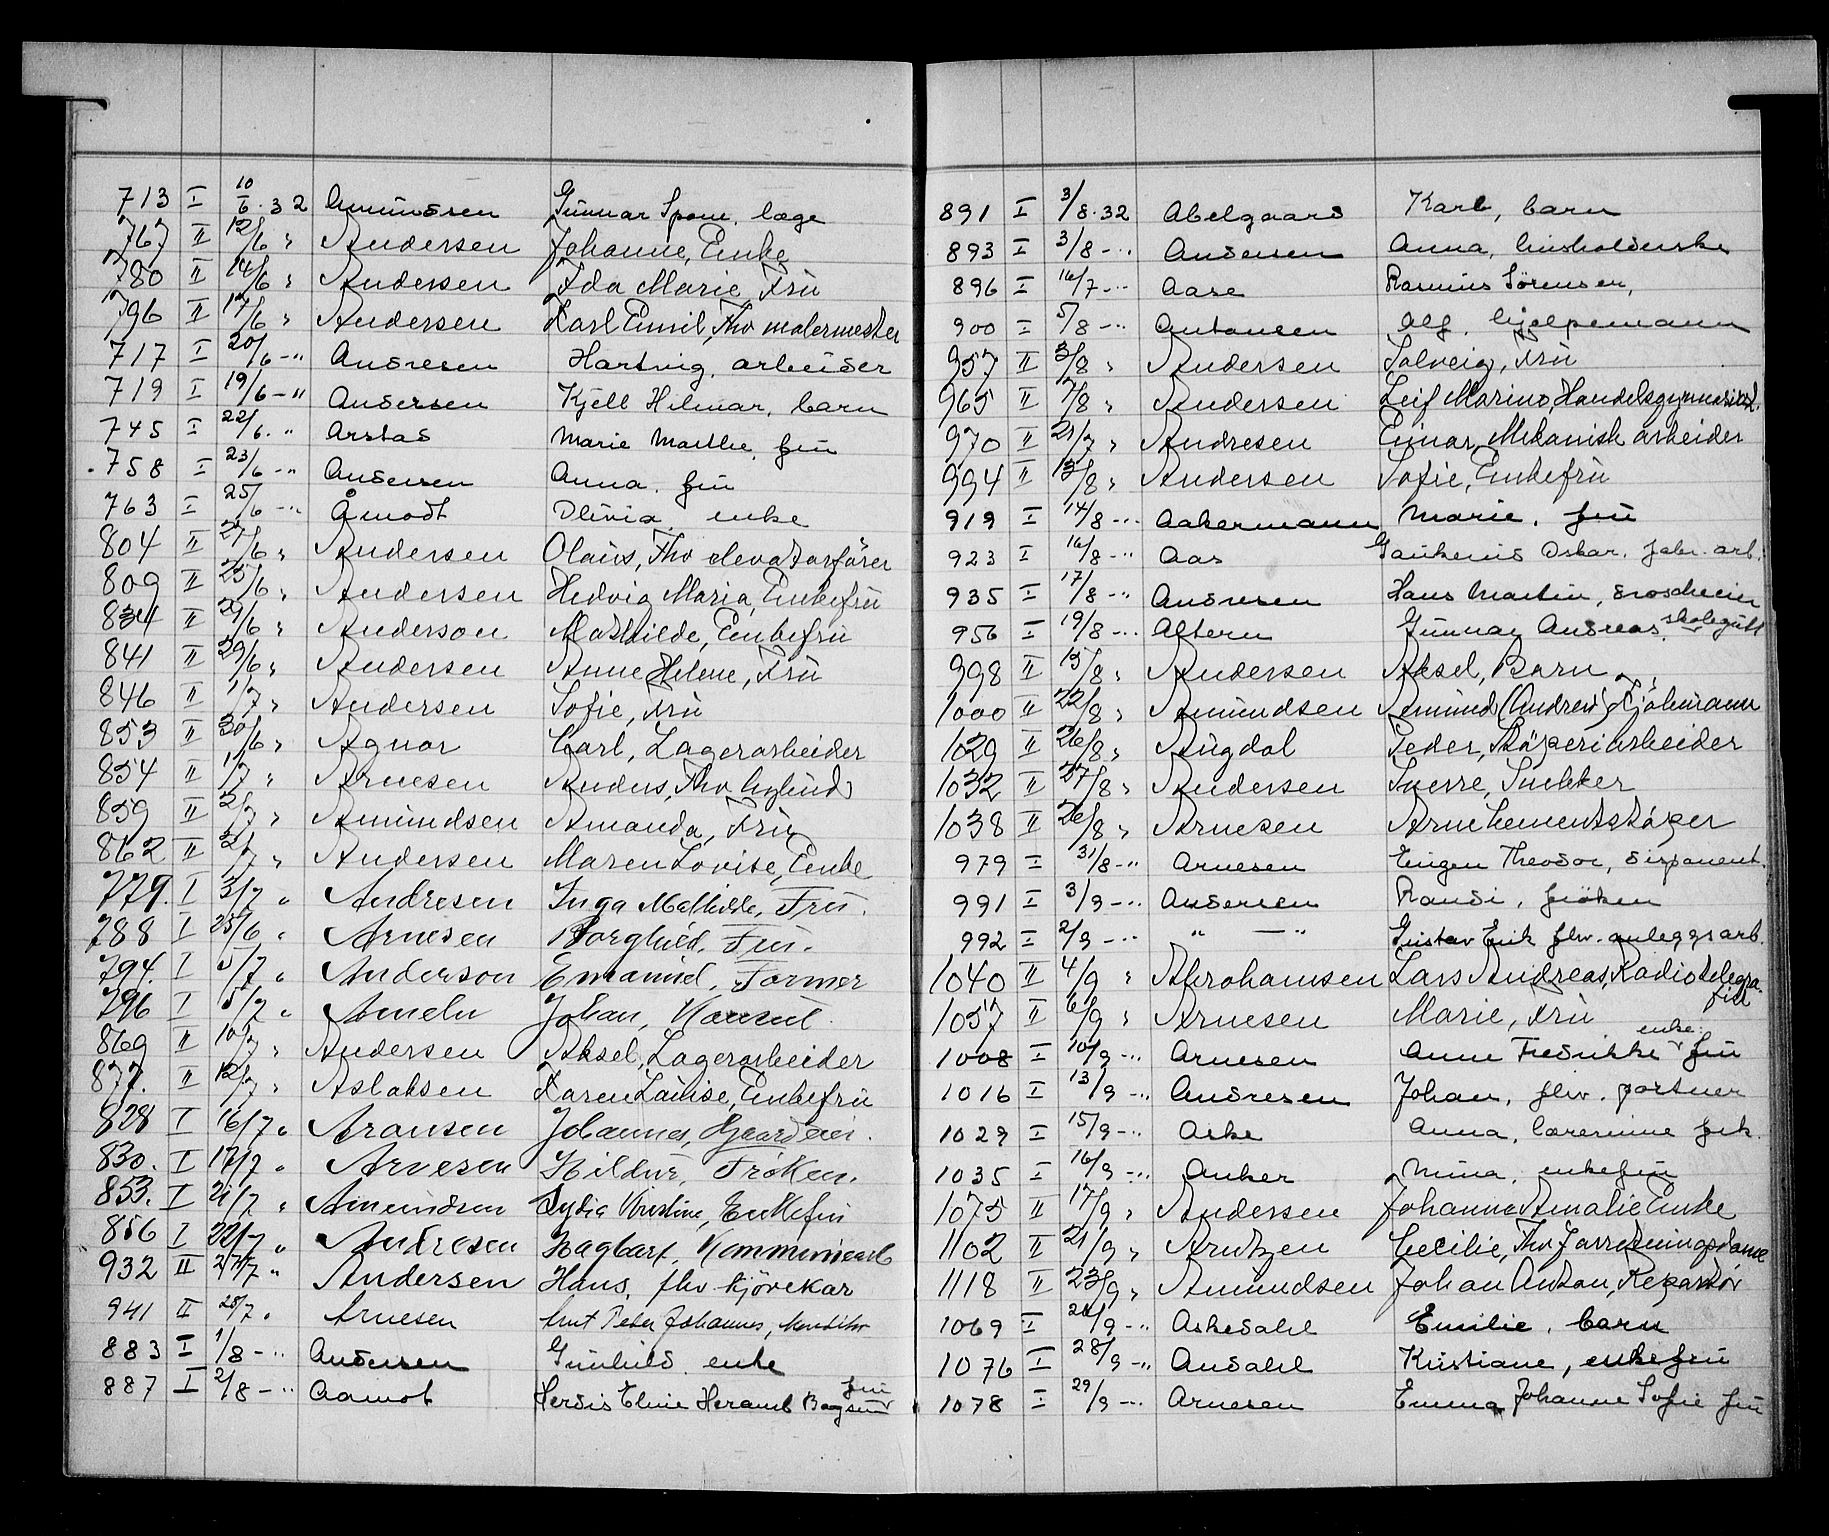 713 I 10/6.32 Amundsen Gunnar Spone, læge
767 II 12/6 " Andersen Johanne, Enke
780 II 14/6 " Andersen Ida Marie Fru
796 II 17/6 " Andersen Karl Emil, Fhv malermester
717 I 20/6 -" Andresen Hartvig, arbeider
719 I 19/6 -" Andersen Kjell Hilmar, barn
745 I 22/6 -" Arstad Marie Marthe, fru
758 I 23/6 -" Andersen Anna, fru
763 I 25/6 -" Åmodt Olivia, enke
804 II 27/6 " Andersen Olaus, Fhv elevatorfører
809 II 25/6 " Andersen Hedvig Maria, Enkefru
834 II 29/6 " Anderson Mathilde, Enkefru
841 II 29/6 " Andersen Anne Helene, Fru
846 II 1/7 " Andersen Sofie, Fru
853 II 30/6 " Agnar Carl, Lagerarbeider
854 II 1/7 " Arnesen Anders, Fhv
859 II 2/7 " Amundsen Amanda, Fru
862 II 2/7 " Andersen Maren Lovise, Enke
779. I 3/7 " Andresen Inga Mathilde, Fru.
788 I 25/6 " Arnesen Borghild, Fru.
794. I 5/7 " Anderson Emanuel, Farmer
796 I 5/7 " Ameln Johan, Konsul.
869 II 10/7 " Andersen Aksel, Lagerarbeider
877. II 12/7 " Aslaksen Karen Louise, Enkefru
828 I 16/7 " Aronsen Johannes,
830. I 17/7 " Arnesen Hildur, Frøken.
853. I 21/7 " Amundsen Lydia Kristine, Enkefru
856 I 22/7 " Andresen Dagbart,
932 II 27/7 " Andersen Hans, fhv kjørekar
941 II 28/7 " Arnesen Peter Johannes,
883 I 1/8 -" Andersen Gunhild enke
887 I 2/8 -" Aamot Herdis Eline Heramb fru
891 I 3/8.32 Abelgaard Karl, barn
893 I 3/8 -" Andersen Anna, husholderske
896 I 16/7 -" Aase Rasmus Sørensen,
900 I 5/8 -" Antonsen Alf, hjelpemann
957 II 3/8 " Andersen Solveig, Fru
965 II 7/8 " Andersen Leif Marino, Handelsgymnasiast.
970 II 21/7 " Andresen Einar, Mekanisk arbeider
994 II 13/8 " Andersen Sofie, Enkefru
919 I 14/8 -" Aakermann Marie, fru
923 I 16/8 -" Aas Oskar, fabr. arb.
935 I 17/8 -" Andresen Hans Martin, droscheeier
956 I 19/8 -" Altern Gunnar Andreas, skolegutt
998 II 15/8 " Andersen Aksel, Barn
1000 II 22/8 " Amundsen Amund (Andrew), Sjømann
1029 II 26/8 " Augdal Peder, Støperiarbeider
1032 II 27/8 " Andersen Sverre, Snekker
1038 II 26/8 " Arnesen Arne Cementstøper
979 I 31/8 -" Arnesen Eugen Theodor, disponent.
991 I 3/9 -" Andersen Randi, frøken
992 I 2/9 -" " — " Gustav Erik fhv. anleggsarb.
1040 II 4/9 " Abrahamsen Lars Andreas, Radiotelegrafist
1057 II 6/9 " Arnesen Marie, Fru
1008 I 10/9 -" Arnesen Anne Fredrikke enkefru
1016 I 13/9 -" Andresen Johan, fhv. portner
1029 I 15/9 -" Aske Anna, lærerinne frk.
1035 I 16/9 -" Anker Nina, enkefru
1075 II 17/9 " Andersen Johanne Amalie Enke
1102 II 21/9 " Arntzen Cecilie, Fhv Forretningsdame
1118 II 23/9 " Amundsen Johan Anton, Reparatør
1069 I 24/9 -" Askedahl Emilie, barn
1076 I 28/9 -" Andahl Kristiane, enkefru
1078 I 29/9 -" Arnesen Emma Johanne Sofie fru